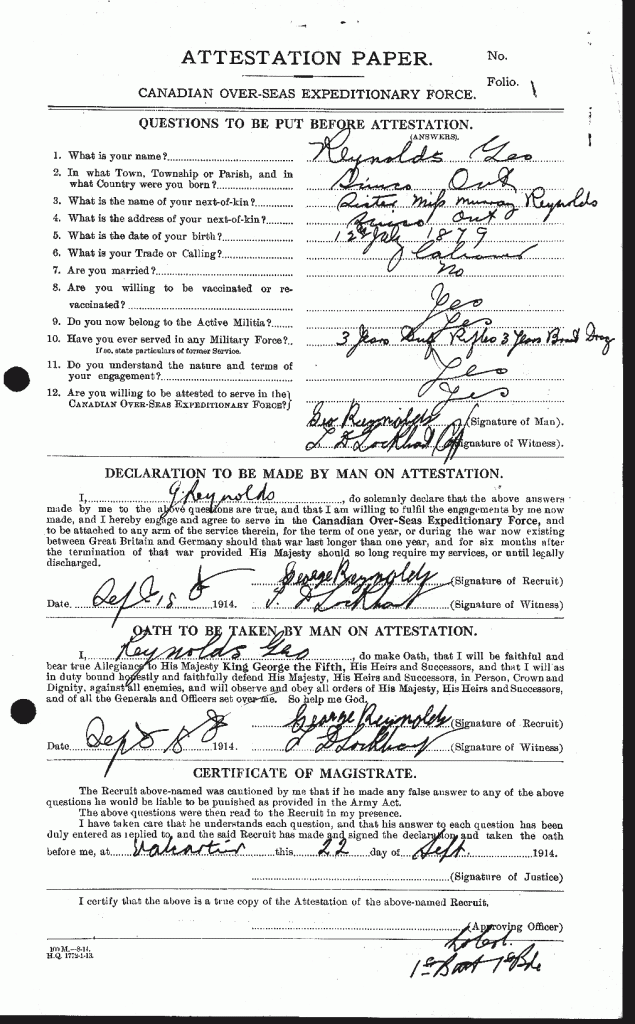 ATTESTATION PAPER.
No.
Folio.
CANADIAN OVER-SEAS EXPEDITIONARY FORCE.
QUESTIONS TO BE PUT BEFORE ATTESTATION.
(ANSWERS).
1. What is your name? Reynolds Geo
2. In what Town, Township or Parish, and in
what Country were you born? Ont
3. What is the name of your next-of-kin? Sister Miss Murray Reynolds
4. What is the address of your next-of-kin? Ont
5. What is the date of your birth? 12th July 1879
6. What is your Trade or Calling?
7. Are you married? No
8. Are you willing to be vaccinated or re-
vaccinated? Yes
9. Do you now belong to the Active Militia? Yes
10. Have you ever served in any Military Force? 3 Years Rifles 3 Years Drag
If so, state particulars of former Service.
11. Do you understand the nature and terms of
your engagement? Yes
12. Are you willing to be attested to serve in the
CANADIAN OVER-SEAS EXPEDITIONARY FORCE? Yes
Geo Reynolds (Signature of Man).
T D Lockhart (Signature of Witness).
DECLARATION TO BE MADE BY MAN ON ATTESTATION.
I, G Reynolds, do solemnly declare that the above answers
made by me to the above questions are true, and that I am willing to fulfil the engagements by me now
made, and I hereby engage and agree to serve in the Canadian Over-Seas Expeditionary Force, and
to be attached to any arm of the service therein, for the term of one year, or during the war now existing
between Great Britain and Germany should that war last longer than one year, and for six months after
the termination of that war provided His Majesty should so long require my services, or until legally
discharged.
George Reynolds (Signature of Recruit)
Date Sept 18 1914. T. D Lockhart (Signature of Witness)
OATH TO BE TAKEN BY MAN ON ATTESTATION.
I, Reynolds Geo, do make Oath, that I will be faithful and
bear true Allegiance to His Majesty King George the Fifth, His Heirs and Successors, and that I will as
in duty bound honestly and faithfully defend His Majesty, His Heirs and Successors, in Person, Crown and
Dignity, against all enemies, and will observe and obey all orders of His Majesty, His Heirs and Successors,
and of all the Generals and Officers set over me. So help me God.
George Reynolds (Signature of Recruit)
Date Sept 18 1914. T D Lockhart (Signature of Witness)
CERTIFICATE OF MAGISTRATE.
The Recruit above-named was cautioned by me that if he made any false answer to any of the above
questions he would be liable to be punished as provided in the Army Act.
The above questions were then read to the Recruit in my presence.
I have taken care that he understands each question, and that his answer to each question has been
duly entered as replied to, and the said Recruit has made and signed the declaration and taken the oath
before me, at Valcartier this 22 day of Sept. 1914.
(Signature of Justice)
I certify that the above is a true copy of the Attestation of the above-named Recruit.
(Approving Officer)
Lt Col.
1st Batt 1st Bde
100 M.—8-14.
H.Q. 1772-1-13.